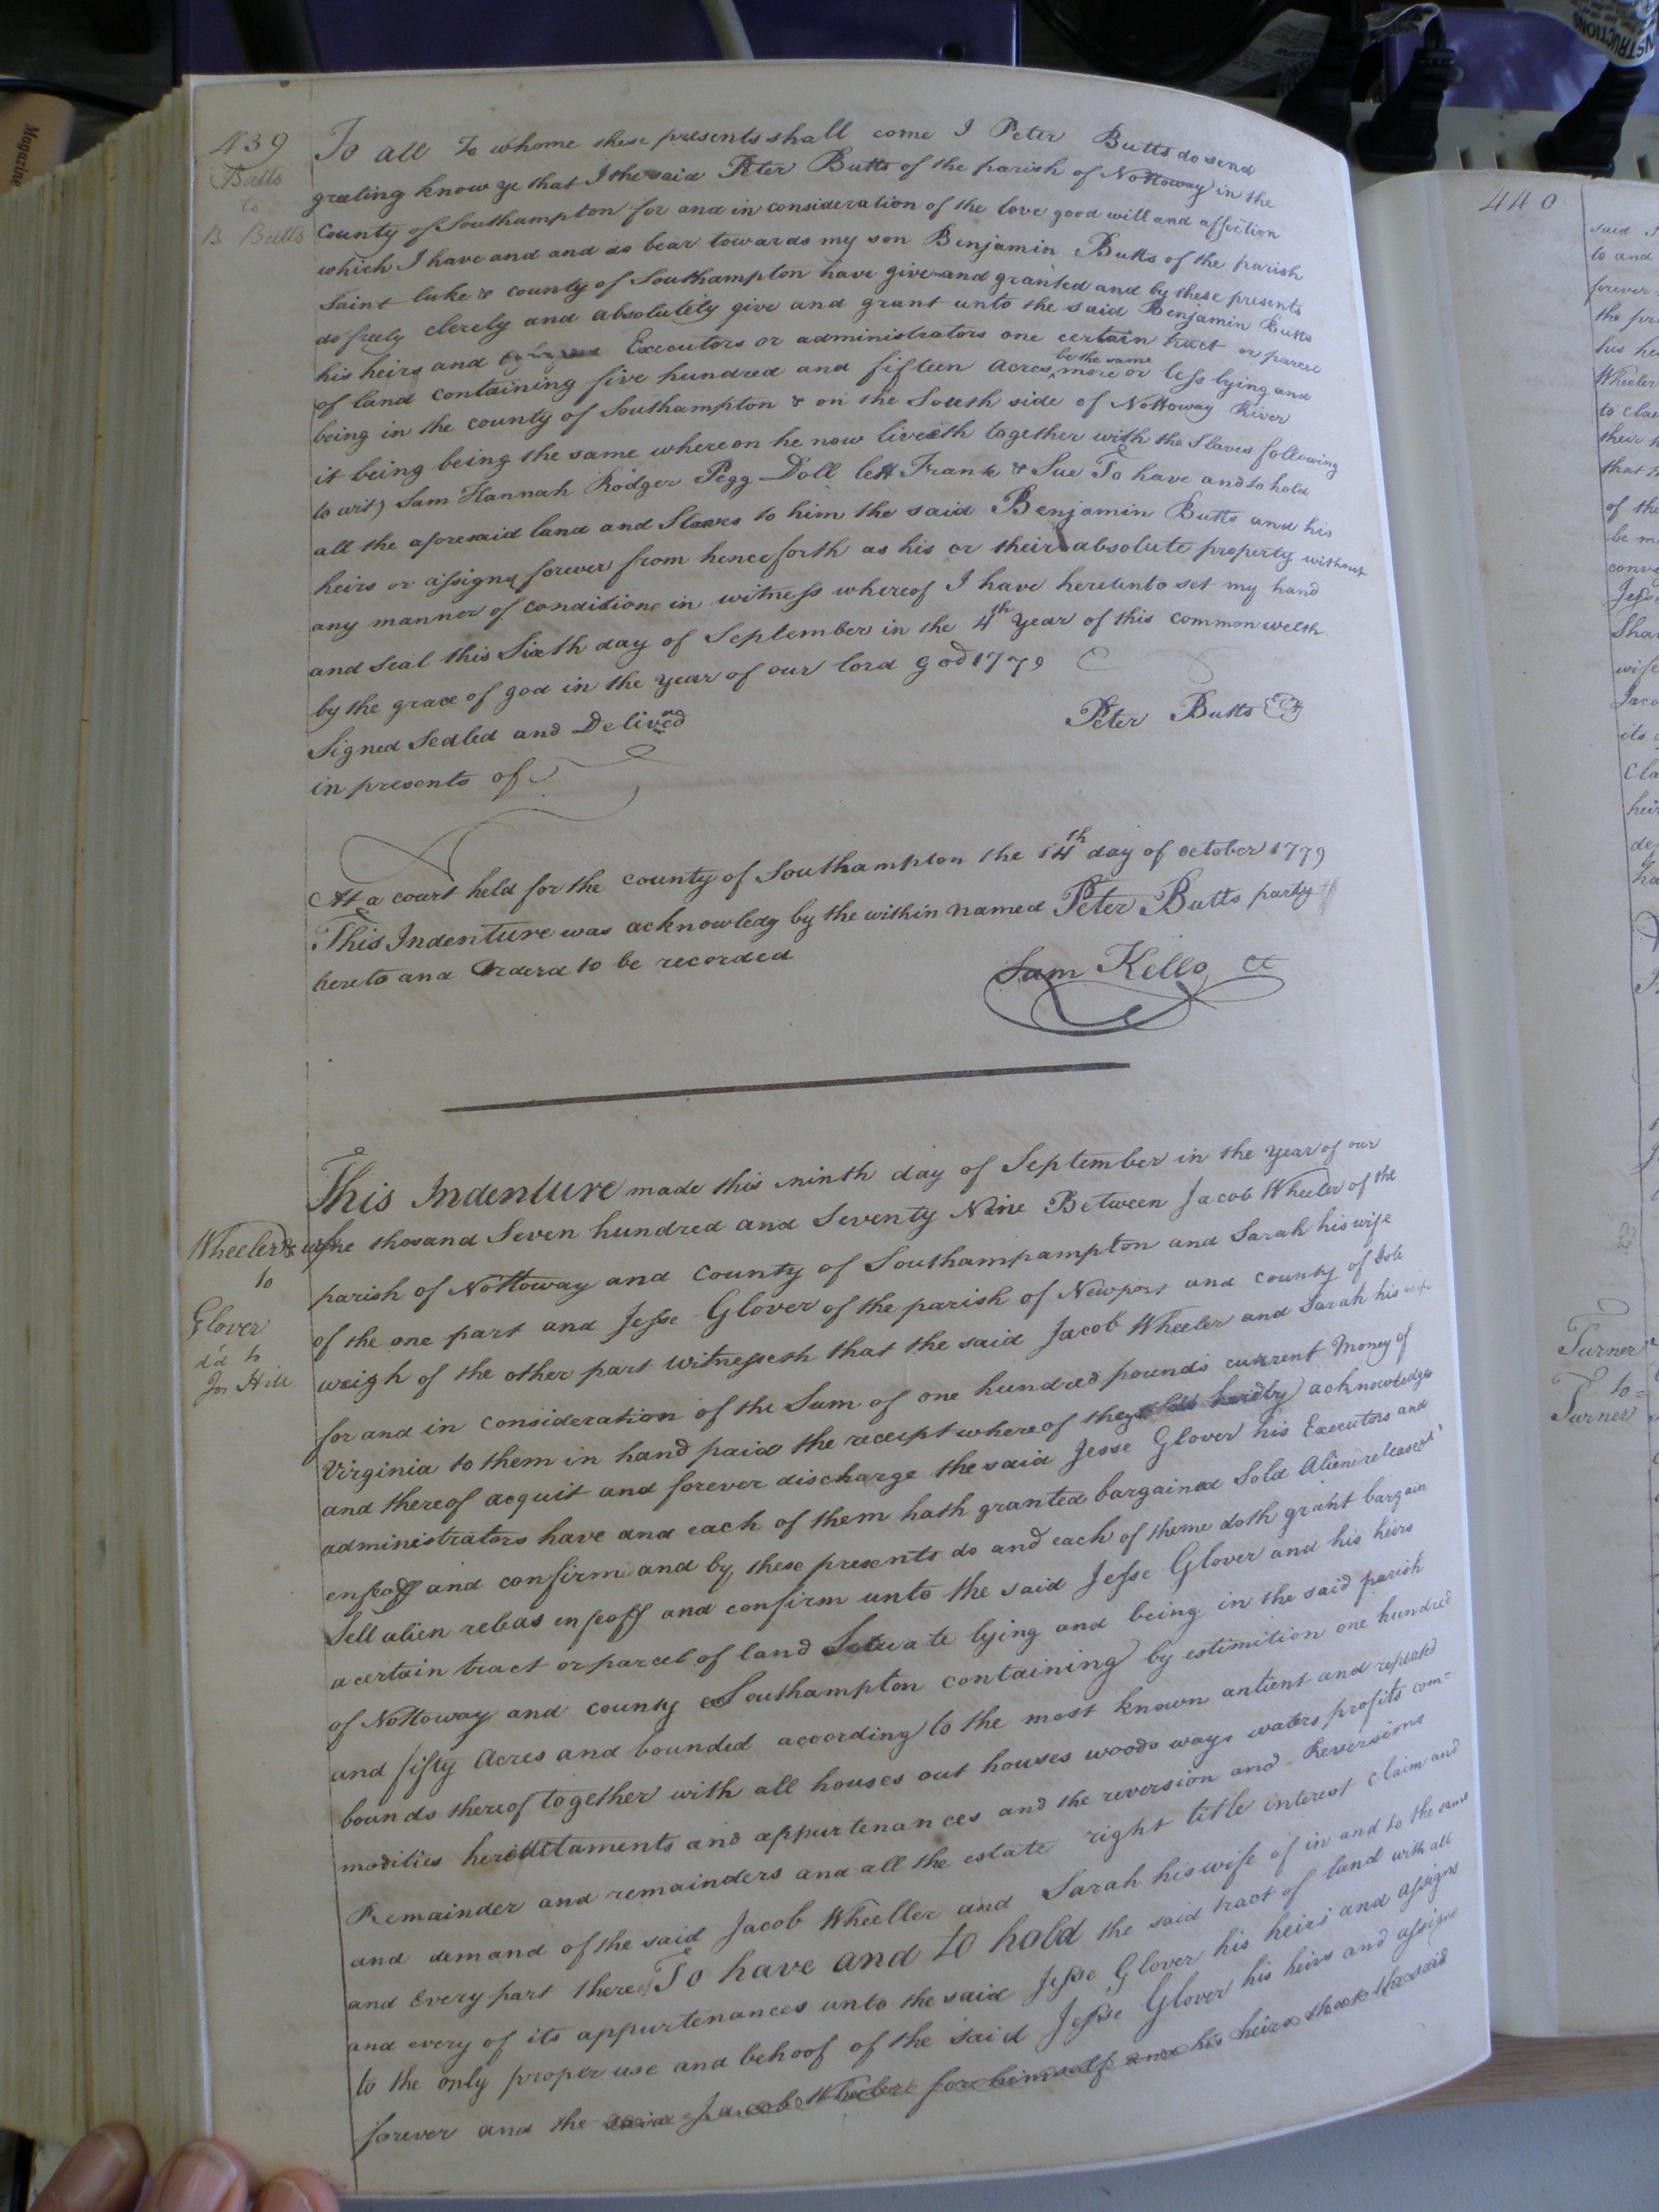 439
Butts
to
B Butts
To all to whome these presents shall come I Peter Butts do send
greeting know ye that I the said Peter Butts of the parish of Nottoway in the
County of Southampton for and in consideration of the love good will and affection
which I have and and do bear towards my son Benjamin Butts of the parish
Saint luke & county of Southampton have give and granted and by these presents
do freely clerely and absolutely give and grant unto the said Benjamin Butts
his heirs and Executors or administrators one certain tract or parcel
of land containing five hundred and fifteen acres be the same more or less lying and
being in the county of Southampton & on the South side of Nottoway River
it being being the same whereon he now liveeth together with the Slaves following
to wit) Sam Hannah Rodger Pegg Doll lett Frank & Sue To have and to hold
all the aforesaid land and Slaves to him the said Benjamin Butts and his
heirs or assigns forever from henceforth as his or their absolute property without
any manner of condition in witness whereof I have hereunto set my hand
and Seal this Sixth day of September in the 4th year of this common welth
by the grace of god in the year of our lord god 1779
Signed Sealed and Delivered
Peter Butts
in presents of
At a court held for the county of Southampton the 14th day of october 1779
This Indenture was acknowledg by the within named Peter Butts party
hereto and Orderd to be recorded
Sam Kello CC
This Indenture made this ninth day of September in the year of our
Wheeler & wife
to
Glover
dd to
Jos Hill
one thosand Seven hundred and Seventy Nine Between Jacob Wheeler of the
parish of Nottoway and County of Southampampton and Sarah his wife
of the one part and Jesse Glover of the parish of Newport and county of Isle
weigh of the other part witnesseth that the said Jacob Wheeler and Sarah his wife
for and in consideration of the Sum of one hundred pounds current money of
Virginia to them in hand paid the receipt whereof they hereby) acknowledge
and thereof acquit and forever discharge the said Jesse Glover his Executors and
administrators have and each of them hath granted bargained Sold Aliend released
enfeoff and confirm and by these presents do and each of theme doth grant bargain
Sell alien releas enfeoff and confirm unto the said Jesse Glover and his heirs
a certain tract or parcel of land Setuate lying and being in the said parish
of Nottoway and county Southampton containing by estimition one hundred
and fifty Acres and bounded according to the most known antient and reputed
bounds thereof together with all houses out houses woods ways waters profits com=
modities hereditaments and appurtenances and the reversion and Reversions
Remainder and remainders and all the estate right title interest claim and
and demand of the said Jacob Wheeller and Sarah his wife of in and to the same
and Every part thereof To have and to hold the said tract of land with all
and every of its appurtenances unto the said Jesse Glover his heirs and assigns
to the only proper use and behoof of the said Jesse Glover his heirs and assigns
forever and the said Jacob Wheeler for himself and his heirs that the said
440
said
to and
forever
the pr
his he
Wheeler
to clai
their
that
of the
be m
conve
Jesse
Shar
wife
Jaco
its
Cla
heir
Turner
to=
Turner
Magazine
INSTRUCTIONS